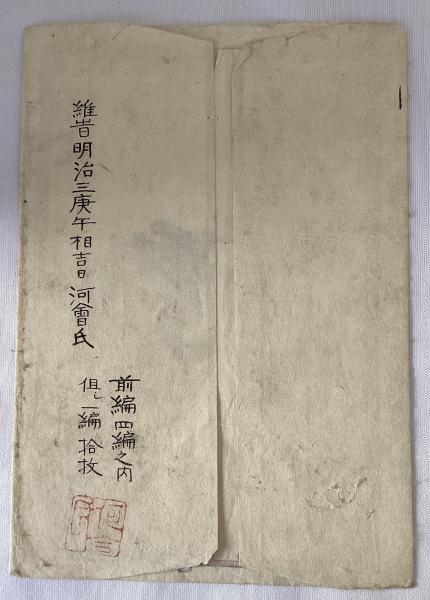 維旹明治三庚午相吉日 河會氏
前編四編之内
但し一編拾枚